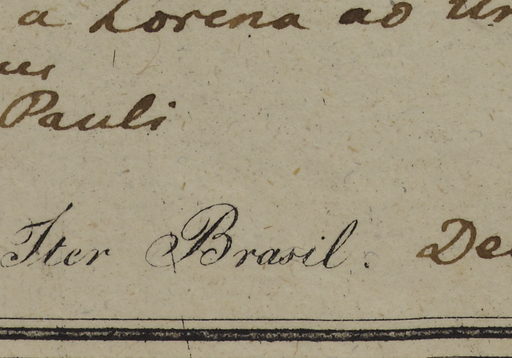 a Lorena ad
Pauli
Iter Brasil. Dec